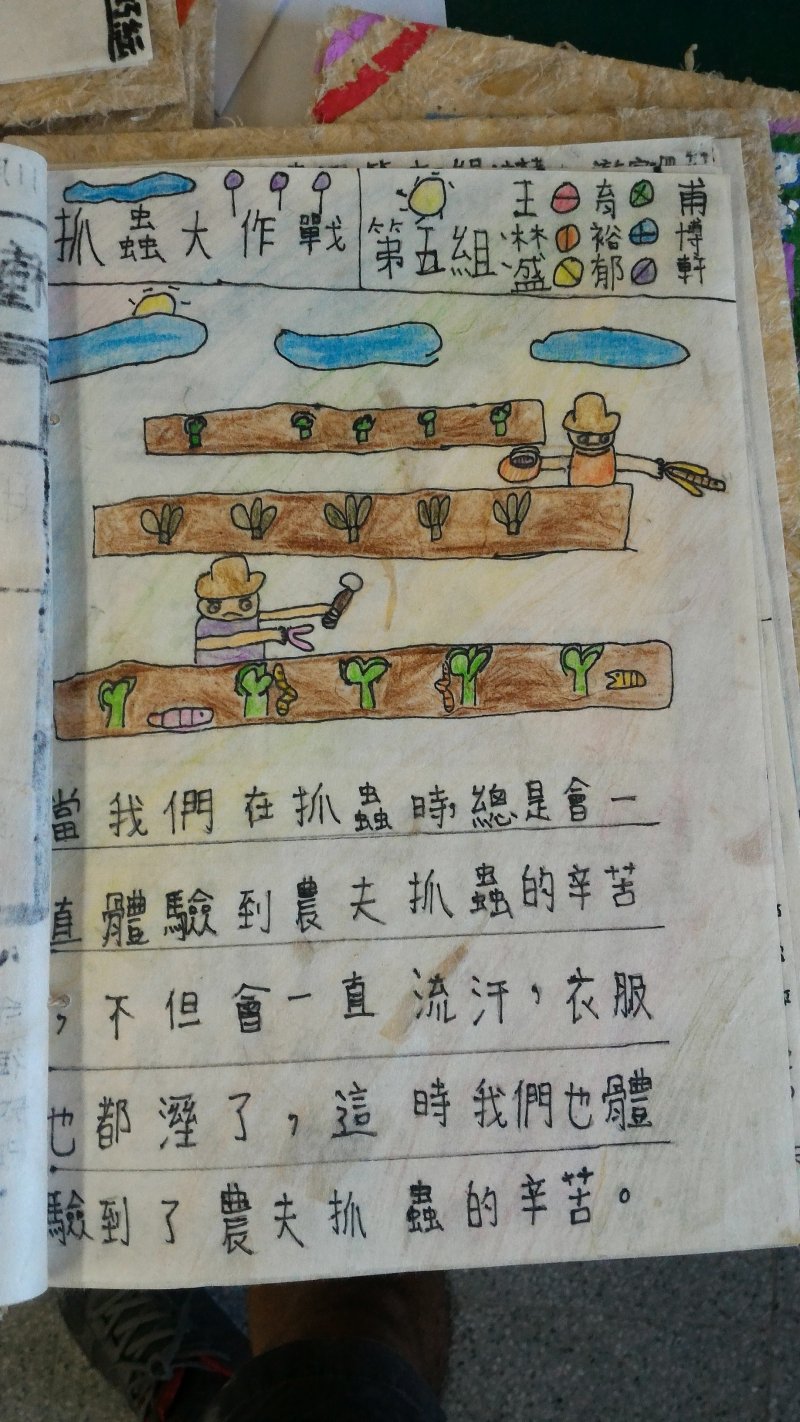 抓蟲大作戰
第五組
育
裕
盛 郁
甫
博
軒
當我們在抓蟲時,總是會一
直體驗到農夫抓蟲的辛苦
,不但會一直流汗,衣服
也都溼了,這時我們也體
驗到了農夫抓蟲的辛苦。